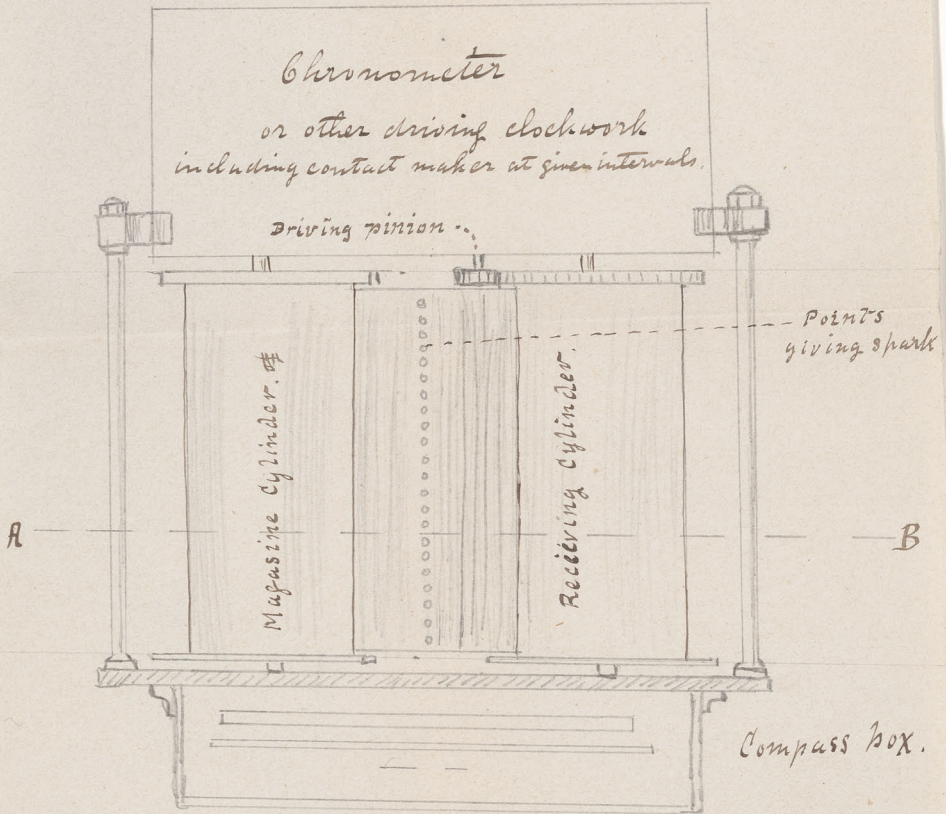 Chronometer
or other driving clockwork
including contact maker at given intervals.
Driving pinion
Points
giving spark
Magasine Cylinder.
Recieving Cylinder.
A
B
Compass box.